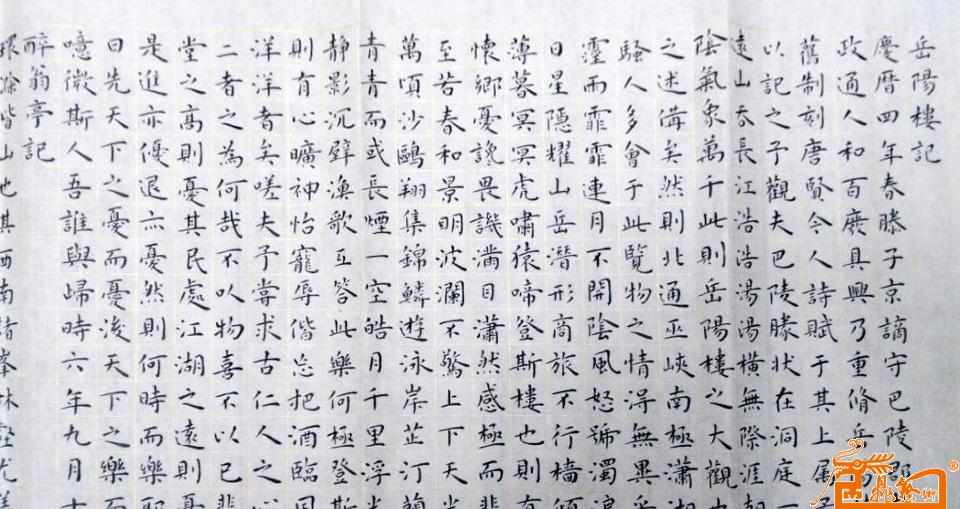 岳陽樓記
慶曆四年春滕子京謫守巴陵郡
政通人和百廢具興乃重脩岳
舊制刻唐賢今人詩賦于其上屬
以記之予觀夫巴陵勝狀在洞庭一
遠山吞長江浩浩湯湯橫無際涯朝
陰氣象萬千此則岳陽樓之大觀也
之述備矣然則北通巫峽南極瀟湘
騷人多會于此覽物之情得無異乎
霪雨霏霏連月不開陰風怒號濁浪
日星隱耀山岳潛形商旅不行檣傾
薄暮冥冥虎嘯猿啼登斯樓也則有
懷鄉憂讒畏譏滿目瀟然感極而悲
至若春和景明波瀾不驚上下天光
萬頃沙鷗翔集錦鱗遊泳岸芷汀蘭
青青而或長煙一空皓月千里浮光
靜影沉璧漁歌互答此樂何極登斯
則有心曠神怡寵辱偕忘把酒臨風
洋洋者矣嗟夫予嘗求古仁人之心
二者之為何哉不以物喜不以己悲
堂之高則憂其民處江湖之遠則憂
是進亦優退亦憂然則何時而樂耶
曰先天下之憂而憂後天下之樂而
噫微斯人吾誰與歸時六年九月十
醉翁亭記
環滁皆山也其西南諸峯林壑尤美